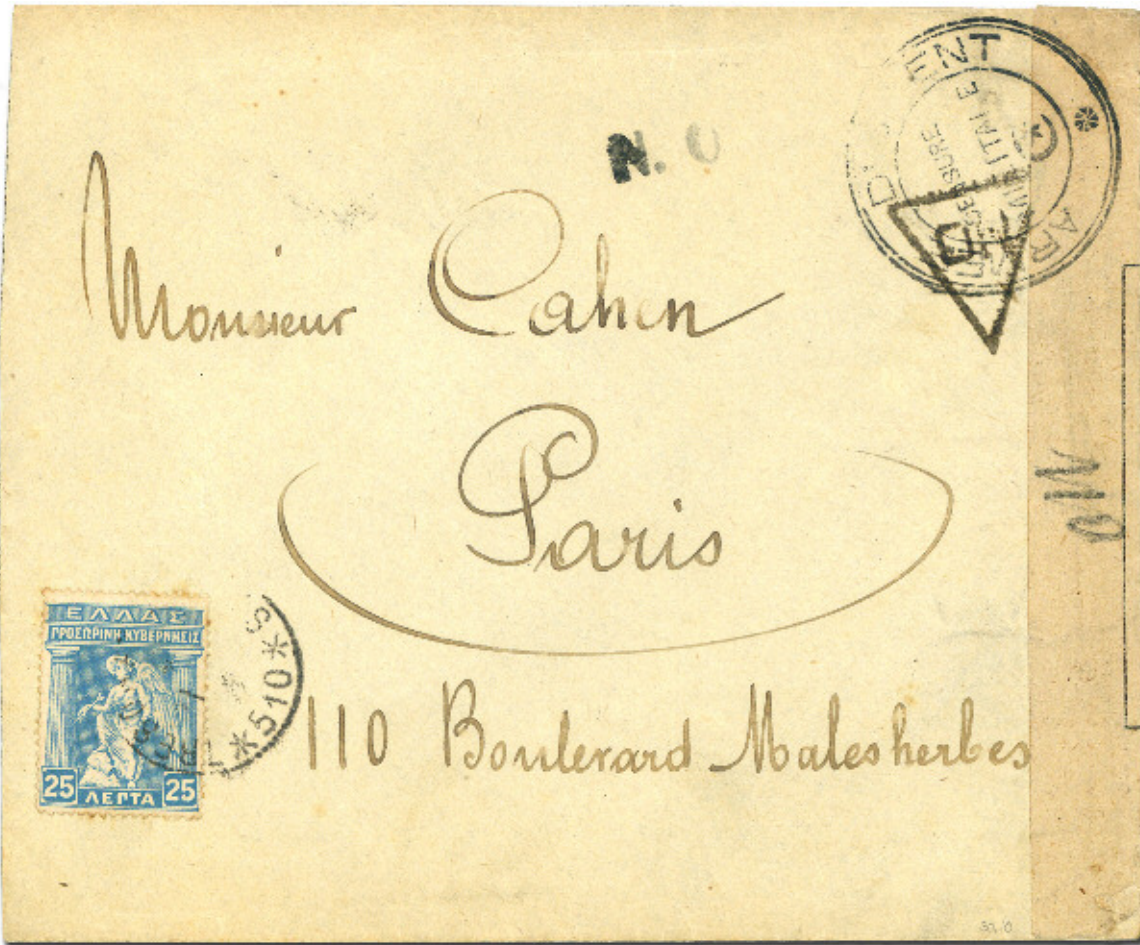 N. O
CENSURE
MILITAIRE
Monsieur Cahen
Paris
110 Boulevard Malesherbes
ΕΛΛΑΣ
ΠΡΟΣΩΡΙΝΗ ΚΥΒΕΡΝΗΣΙΣ
25 ΛΕΠΤΑ 25
*510*S